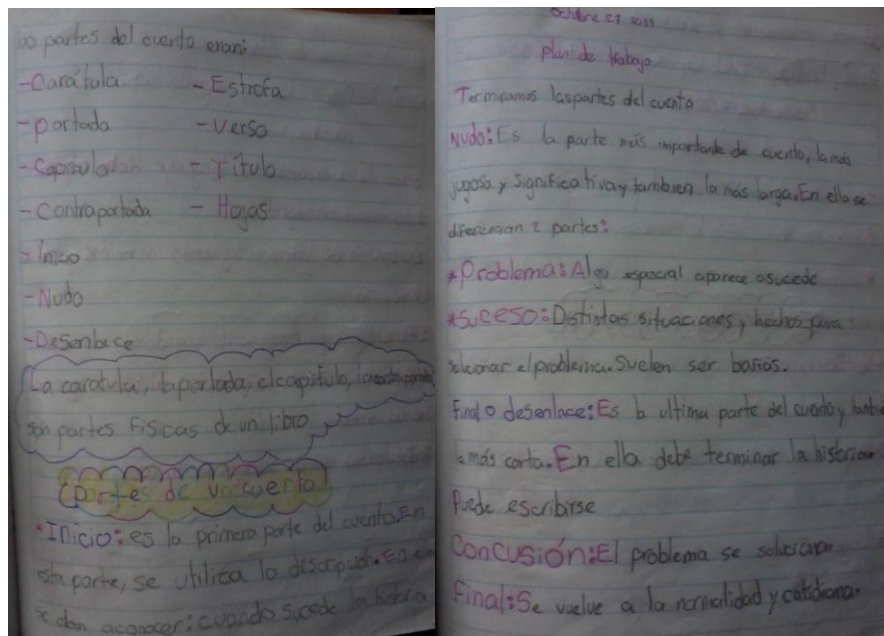 partes del cuento eran:
-Carátula - Estrofa
-portada - Verso
-Capitulo - Título
-Contraportada - Hojas
-Inicio
-Nudo
-Desenlace
La caratula, la portada, el capitulo, la contraportada
son partes fisicas de un libro
Partes de un cuento
*Inicio: es la primera parte del cuento. En
esta parte, se utiliza la descripción. En
se dan aconocer: cuando sucede la historia
Octubre 27 2011
plan de trabajo
Terminamos las partes del cuento
Nudo: Es la parte más importante de cuento, la más
jugosa y significativa y tambien la más larga. En ella se
diferencian 2 partes:
*Problema: Algo especial aparece o sucede
*Suceso: Distintas situaciones y hechos para
solucionar el problema. Suelen ser barios.
Final o desenlace: Es la ultima parte del cuento y
la más corta. En ella debe terminar la historia.
Puede escribirse
Concusión: El problema se soluciona
Final: Se vuelve a la normalidad y cotidiana.